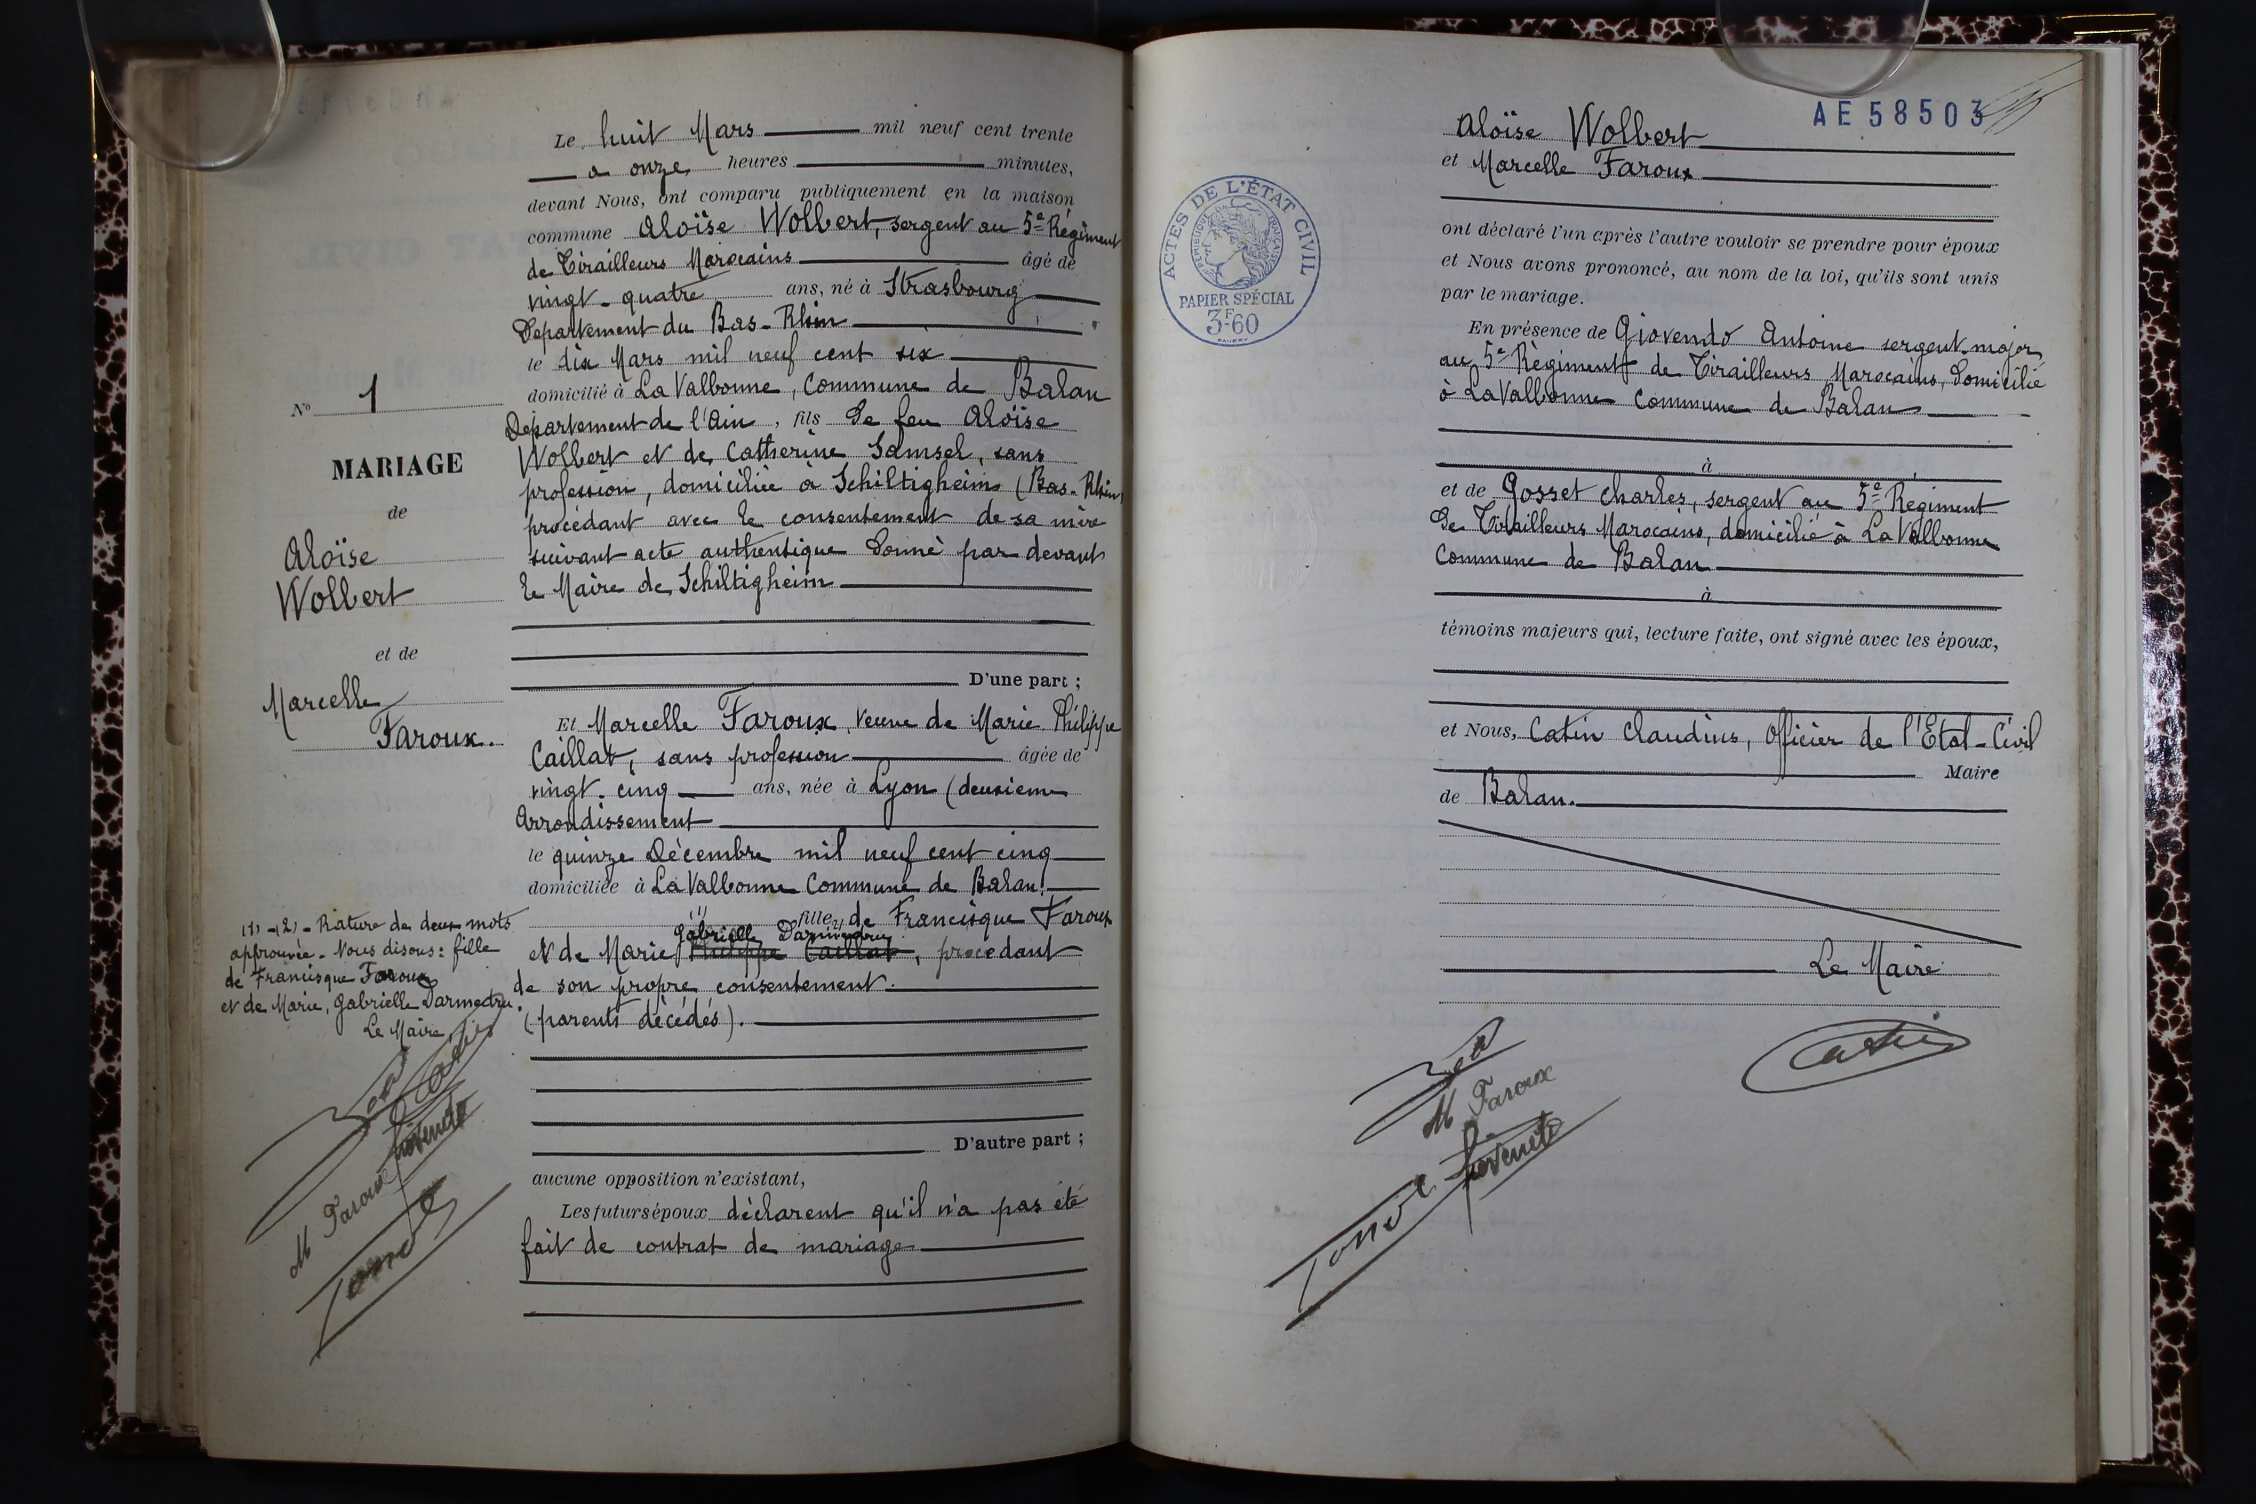 Le huit Mars mil neuf cent trente
a onze heures minutes,
devant Nous, ont comparu publiquement en la maison
commune Aloïse Wolbert, sergent au 5e Régiment
de Tirailleurs Marocains âgé de
vingt-quatre ans, né à Strasbourg
Département du Bas-Rhin
le dix Mars mil neuf cent six
domicilié à La Valbonne, Commune de Balan
Département de l'Ain, fils de feu Aloïse
Wolbert et de Catherine Samsel, sans
profession, domiciliée à Schiltigheim (Bas-Rhin)
procédant avec le consentement de sa mère
suivant acte authentique donné par devant
le Maire de Schiltigheim
D'une part ;
No 1
MARIAGE
de
Aloïse
Wolbert
et de
Marcelle
Faroux.
Et Marcelle Faroux, veuve de Marie Philippe
Caillat, sans profession âgée de
vingt-cinq ans, née à Lyon (deuxième
Arrondissement
le quinze Décembre mil neuf cent cinq
domiciliée à La Valbonne Commune de Balan
fille de Francisque Faroux
Gabrielle Darmedru
et de Marie Philippe Caillat, procédant
de son propre consentement.
(parents décédés).
(1)-(2)- Rature de deux mots
approuvée. Nous disons : fille
de Francisque Faroux
et de Marie, Gabrielle Darmedru.
Le Maire,
Catin
Giovendo
M Faroux
D'autre part ;
aucune opposition n'existant,
Les futurs époux déclarent qu'il n'a pas été
fait de contrat de mariage
AE58503
Aloïse Wolbert
et Marcelle Faroux
ACTES DE L'ÉTAT CIVIL
RÉPUBLIQUE FRANÇAISE
PAPIER SPÉCIAL
3F60
ont déclaré l'un après l'autre vouloir se prendre pour époux
et Nous avons prononcé, au nom de la loi, qu'ils sont unis
par le mariage.
En présence de Giovendo Antoine sergent-major
au 5e Régiment de Tirailleurs Marocains, domicilié
à La Valbonne Commune de Balan
à
et de Gosset Charles, sergent au 5e Régiment
de Tirailleurs Marocains, domicilié à La Valbonne
Commune de Balan
à
témoins majeurs qui, lecture faite, ont signé avec les époux,
et Nous, Catin Claudius, Officier de l'Etat-Civil
Maire
de Balan.
Le Maire
Catin
M Faroux
Giovendo